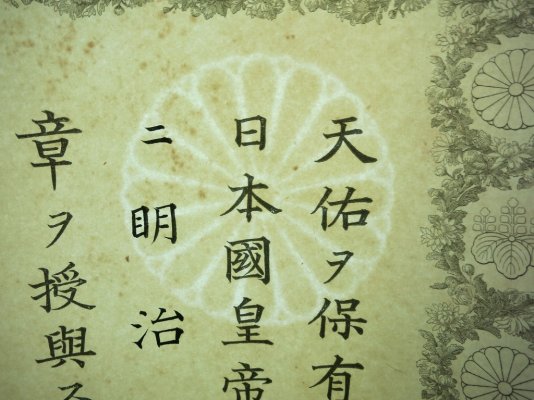 天佑ヲ保有
日本國皇帝
ニ明治
章ヲ授與ス